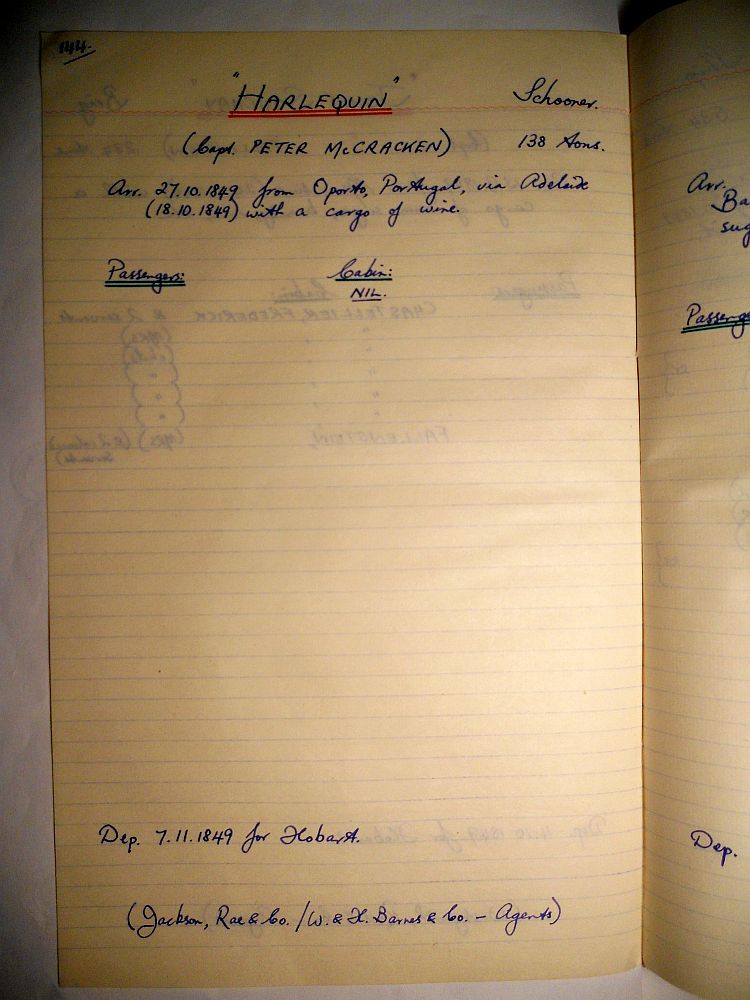 144.
"HARLEQUIN" Schooner.
(Capt. PETER McCRACKEN) 138 tons.
Arr. 27.10.1849 from Oporto, Portugal, via Adelaide
(18.10.1849) with a cargo of wine.
Passengers: Cabin:
NIL.
Dep. 7.11.1849 for Hobart.
(Jackson, Rae & Co. / W. & H. Barnes & Co. – Agents)
Arr.
Ba
sug
Passenge
Dep.